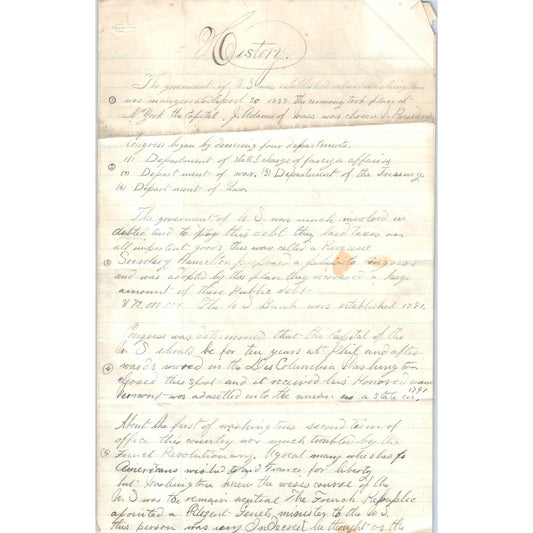 History.
The goverment of U S was established when Washington
① was inaugurated April 30 1789 the ceremony took place at
N. York the Capital. J. Adams of Mass was chosen V. President
Congress began by creating four departments.
② (1) Department of state (charge of foreign affairs)
(2) Department of war. (3) Department of the Treasury.
(4) Department of Law.
The goverment of U S. was much involved in
debted and to pay this debt they laid taxes on
all important goods this was called a Revenue
③ Secretary Hamelton proposed a plan to Congress
and was adopted by this plan they a large
amount of these Public debt.
$72,000.000. The U S Bank was established 1791.
Congress was determined that the Capital of the
U. S should be for ten years at Phil and after
④ wards moved in the Dis Columbia Washington
this spot and it received his Honored name
Vermont was admitted into the union as a state in 1791
About the first of washingtons second term of
office this country was much troubled by the
⑤ French Revolutionary. A great many who had
Americans wished to aid France for liberty
but Washington knew the wises course of the
U. S was the remain neutral The French Republic
apointed a Genet, minister to the U S.
this person was very Indecreet he thought as the